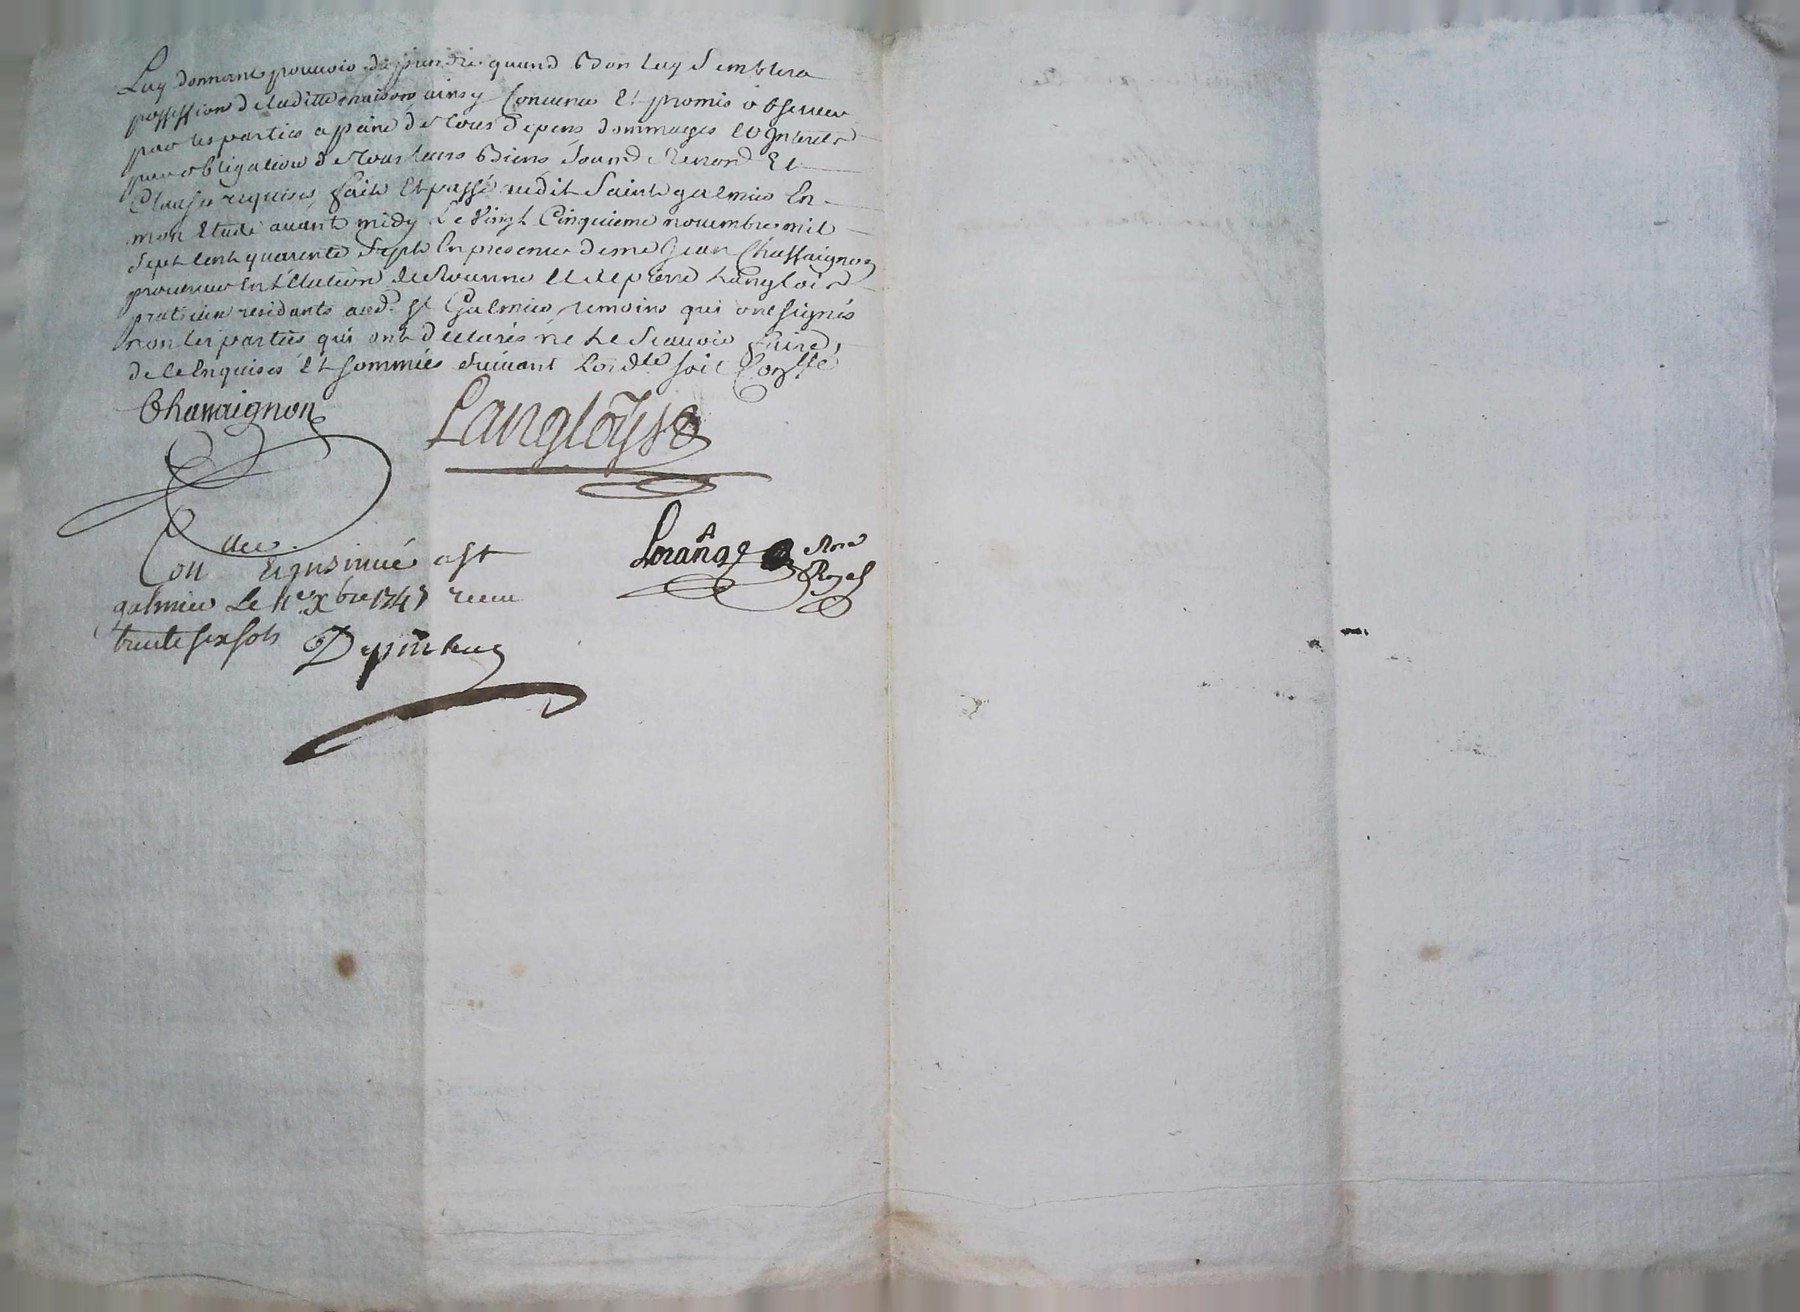 Luy donnant pouvoir de prendre quand Bon luy Semblera
possession de laditte maison ainsy Convenu Et promis observer
par les parties a peine de tous depens dommages et Interets
par obligation de tous leurs Biens Et
Clauses requises, fait Et passé audit Saint galmier En
mon Etude avant midy Le Vingt Cinquieme novembre mil
Sept Cent quarente Sept En presence de me Jean Chassaignon
procureur En l'Election de Roanne et de pierre Langlois
praticien residants aud. St Galmier temoins qui ont signés
non les parties qui ont declarés ne le Scavoir faire,
de ce Enquises Et sommées suivant Lord.ce soit Con.llé
Chassaignon
Langloys
Lorange Nore Royal
Con Et Insinué a St
galmier Le 1er Xbre 1747 receu
trente six sols